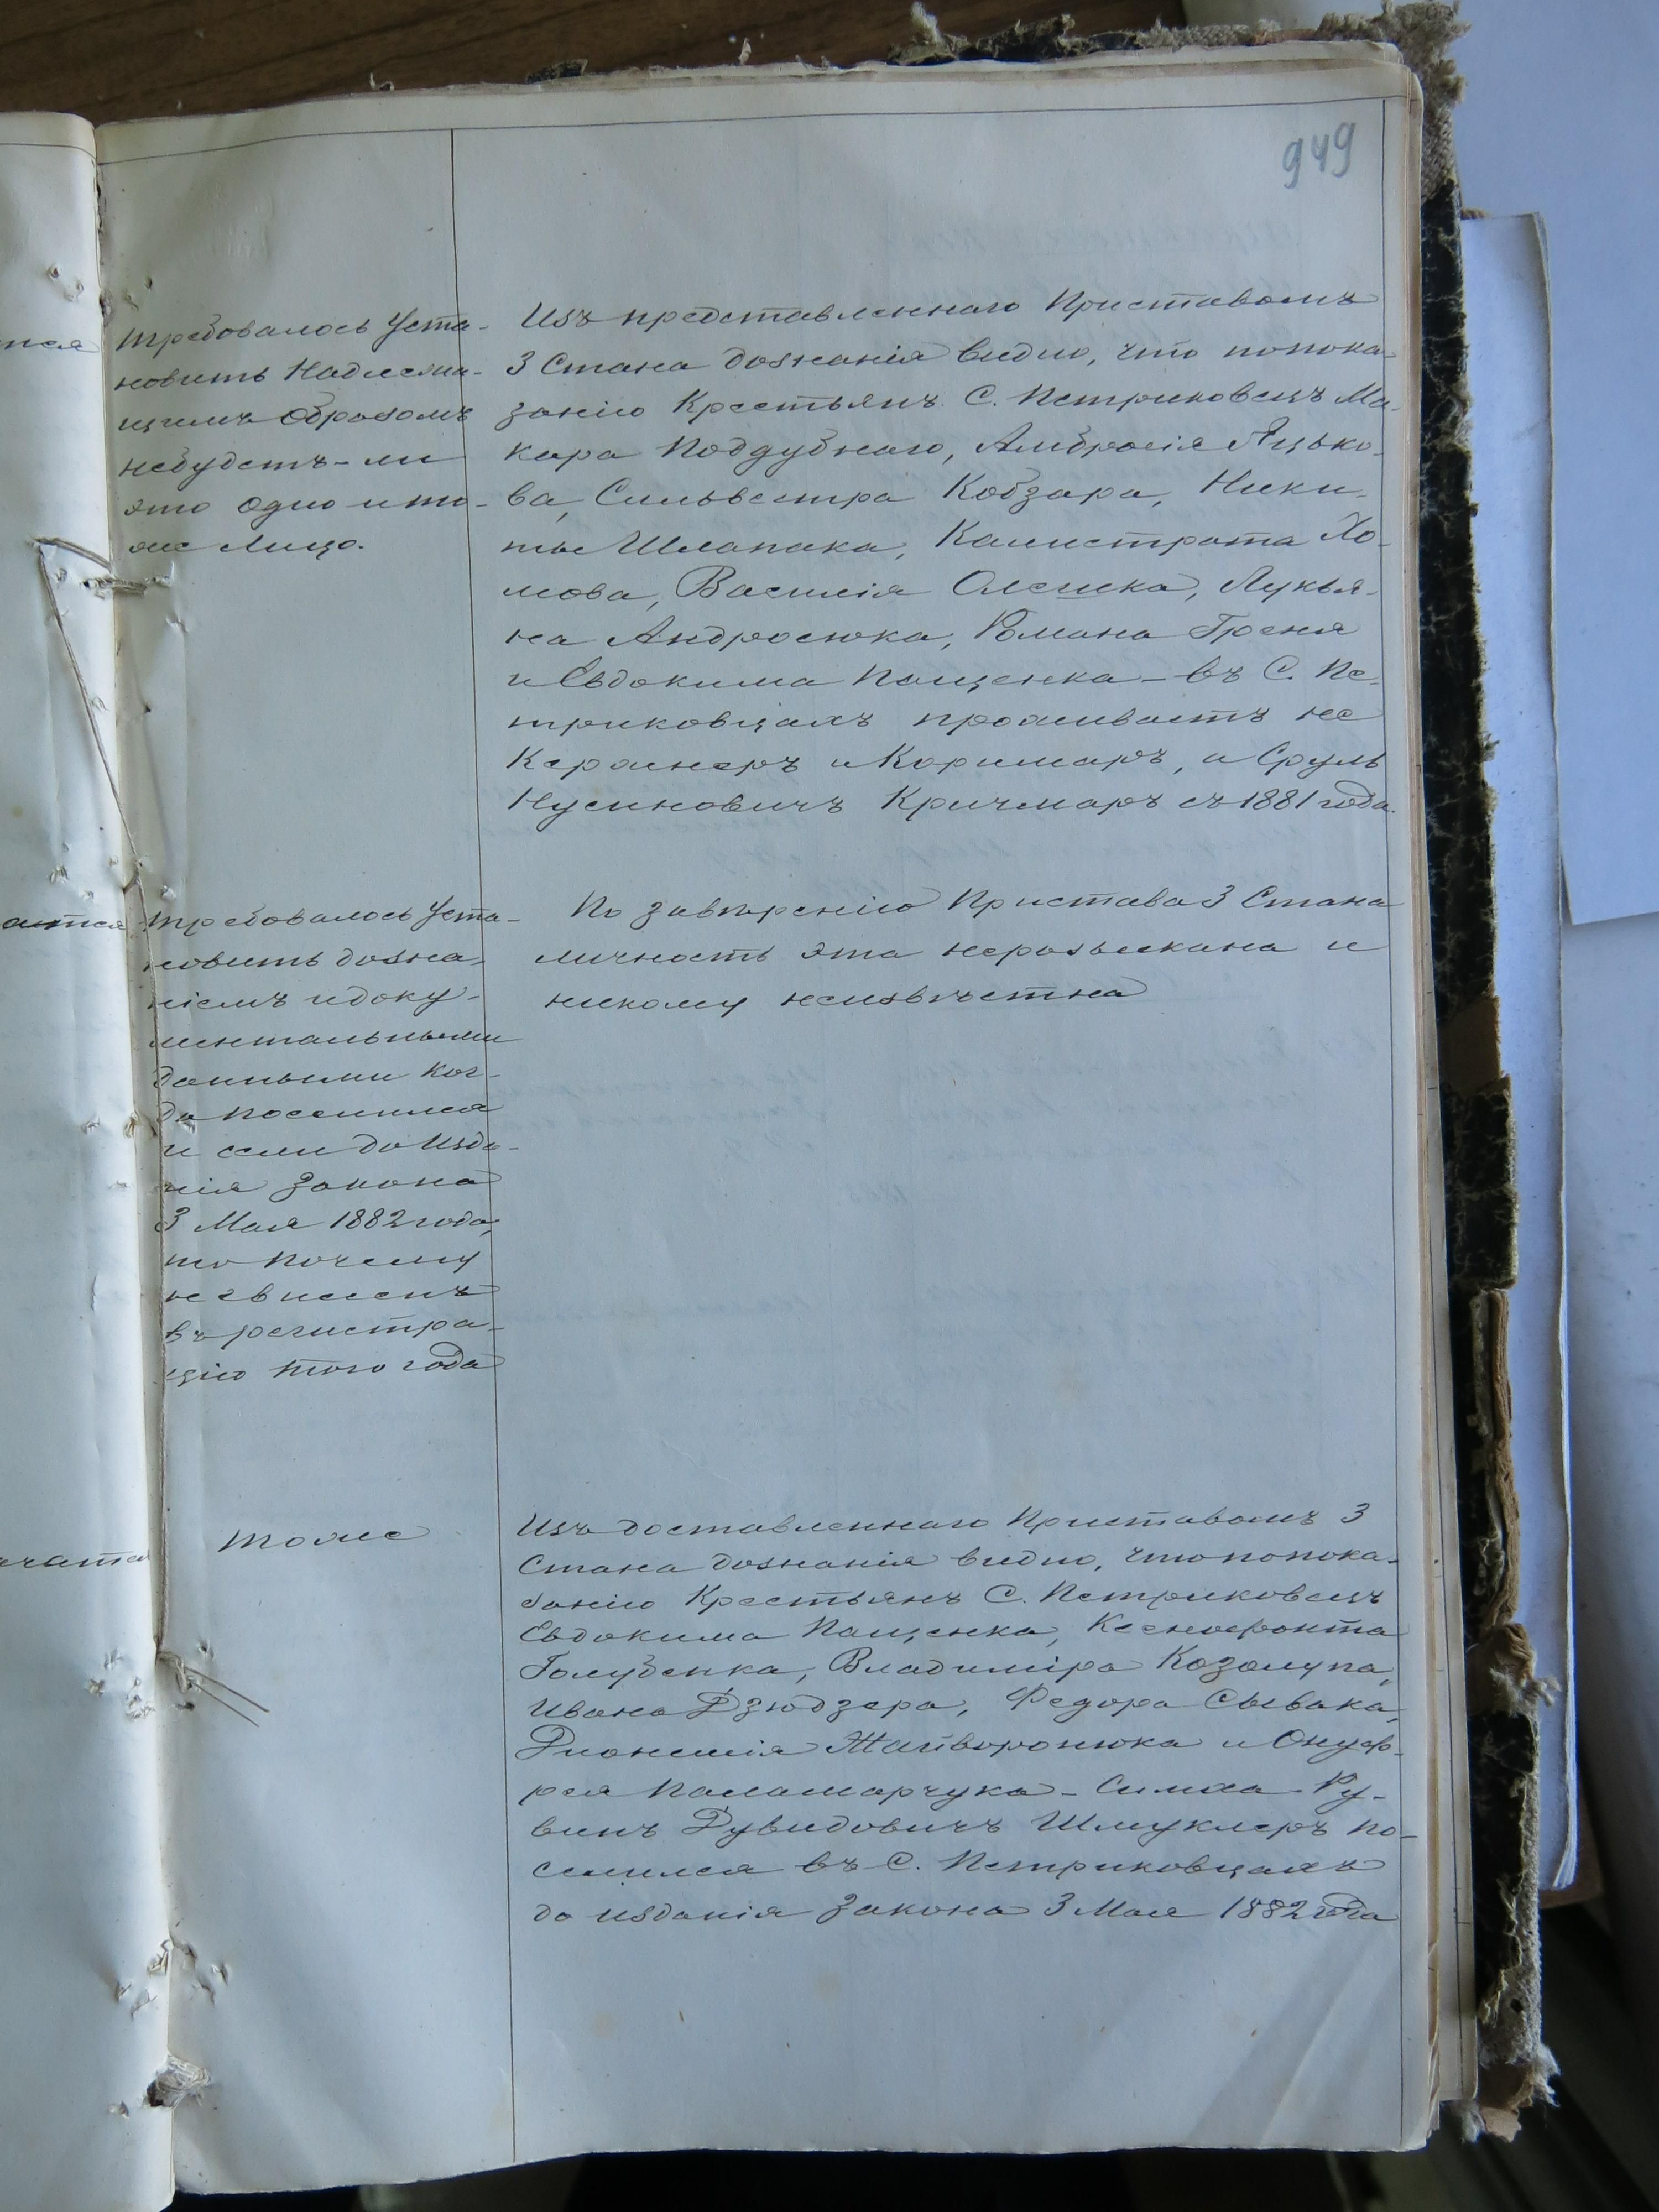 949
Требовалось Уста-
новить Надлежа-
щимъ Образомъ
небудетъ-ли
это одно и то-
же Лицо.
Изъ представленнаго Приставомъ
3 Стана дознанія видно, что попока-
занію Крестьянъ С. Петриковецъ Ма-
кара Поддубнаго, Амбросія Яцько-
ва, Сильвестра Кобзара, Ники-
ты Шлапака, Калистрата Хо-
мова, Василія Олешка, Лукья-
на Андросюка, Романа Греня
и Евдокима Пащенка – въ С. Пе-
триковцахъ проживаетъ не
Кержнеръ и Коримаръ, а Сруль
Нусиновичъ Кричмаръ съ 1881 года.
Требовалось Уста-
новить дозна-
ніемъ и доку-
ментальными
данными Ког-
да поселился
и если до Изда-
нія Закона
3 Мая 1882 года,
то почему
не внесенъ
въ регистра-
цію того года
По завѣренію Пристава 3 Стана
личность эта неразыскана и
никому неизвѣстна
тоже
Изъ доставленнаго Приставомъ 3
Стана дознанія видно, что попока-
занію Крестьянъ С. Петриковецъ
Евдокима Пащенка, Ксенофонта
Голубенка, Владиміра Козолупа,
Ивана Дзюдзера, Федора Сывака,
Діонисія Жайворонюка и Онуф-
рея Паламарчука – Симха-Ру-
винъ Дувидовичъ Шмуклеръ по-
селился въ С. Петриковцахъ
до изданія Закона 3 Мая 1882 года